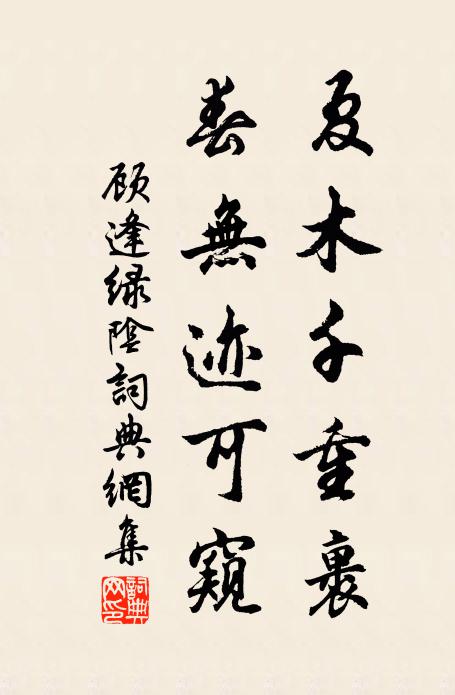 夏木千重裹
春無迹可窺
顾逢緑陰詞典網集
詞典网印